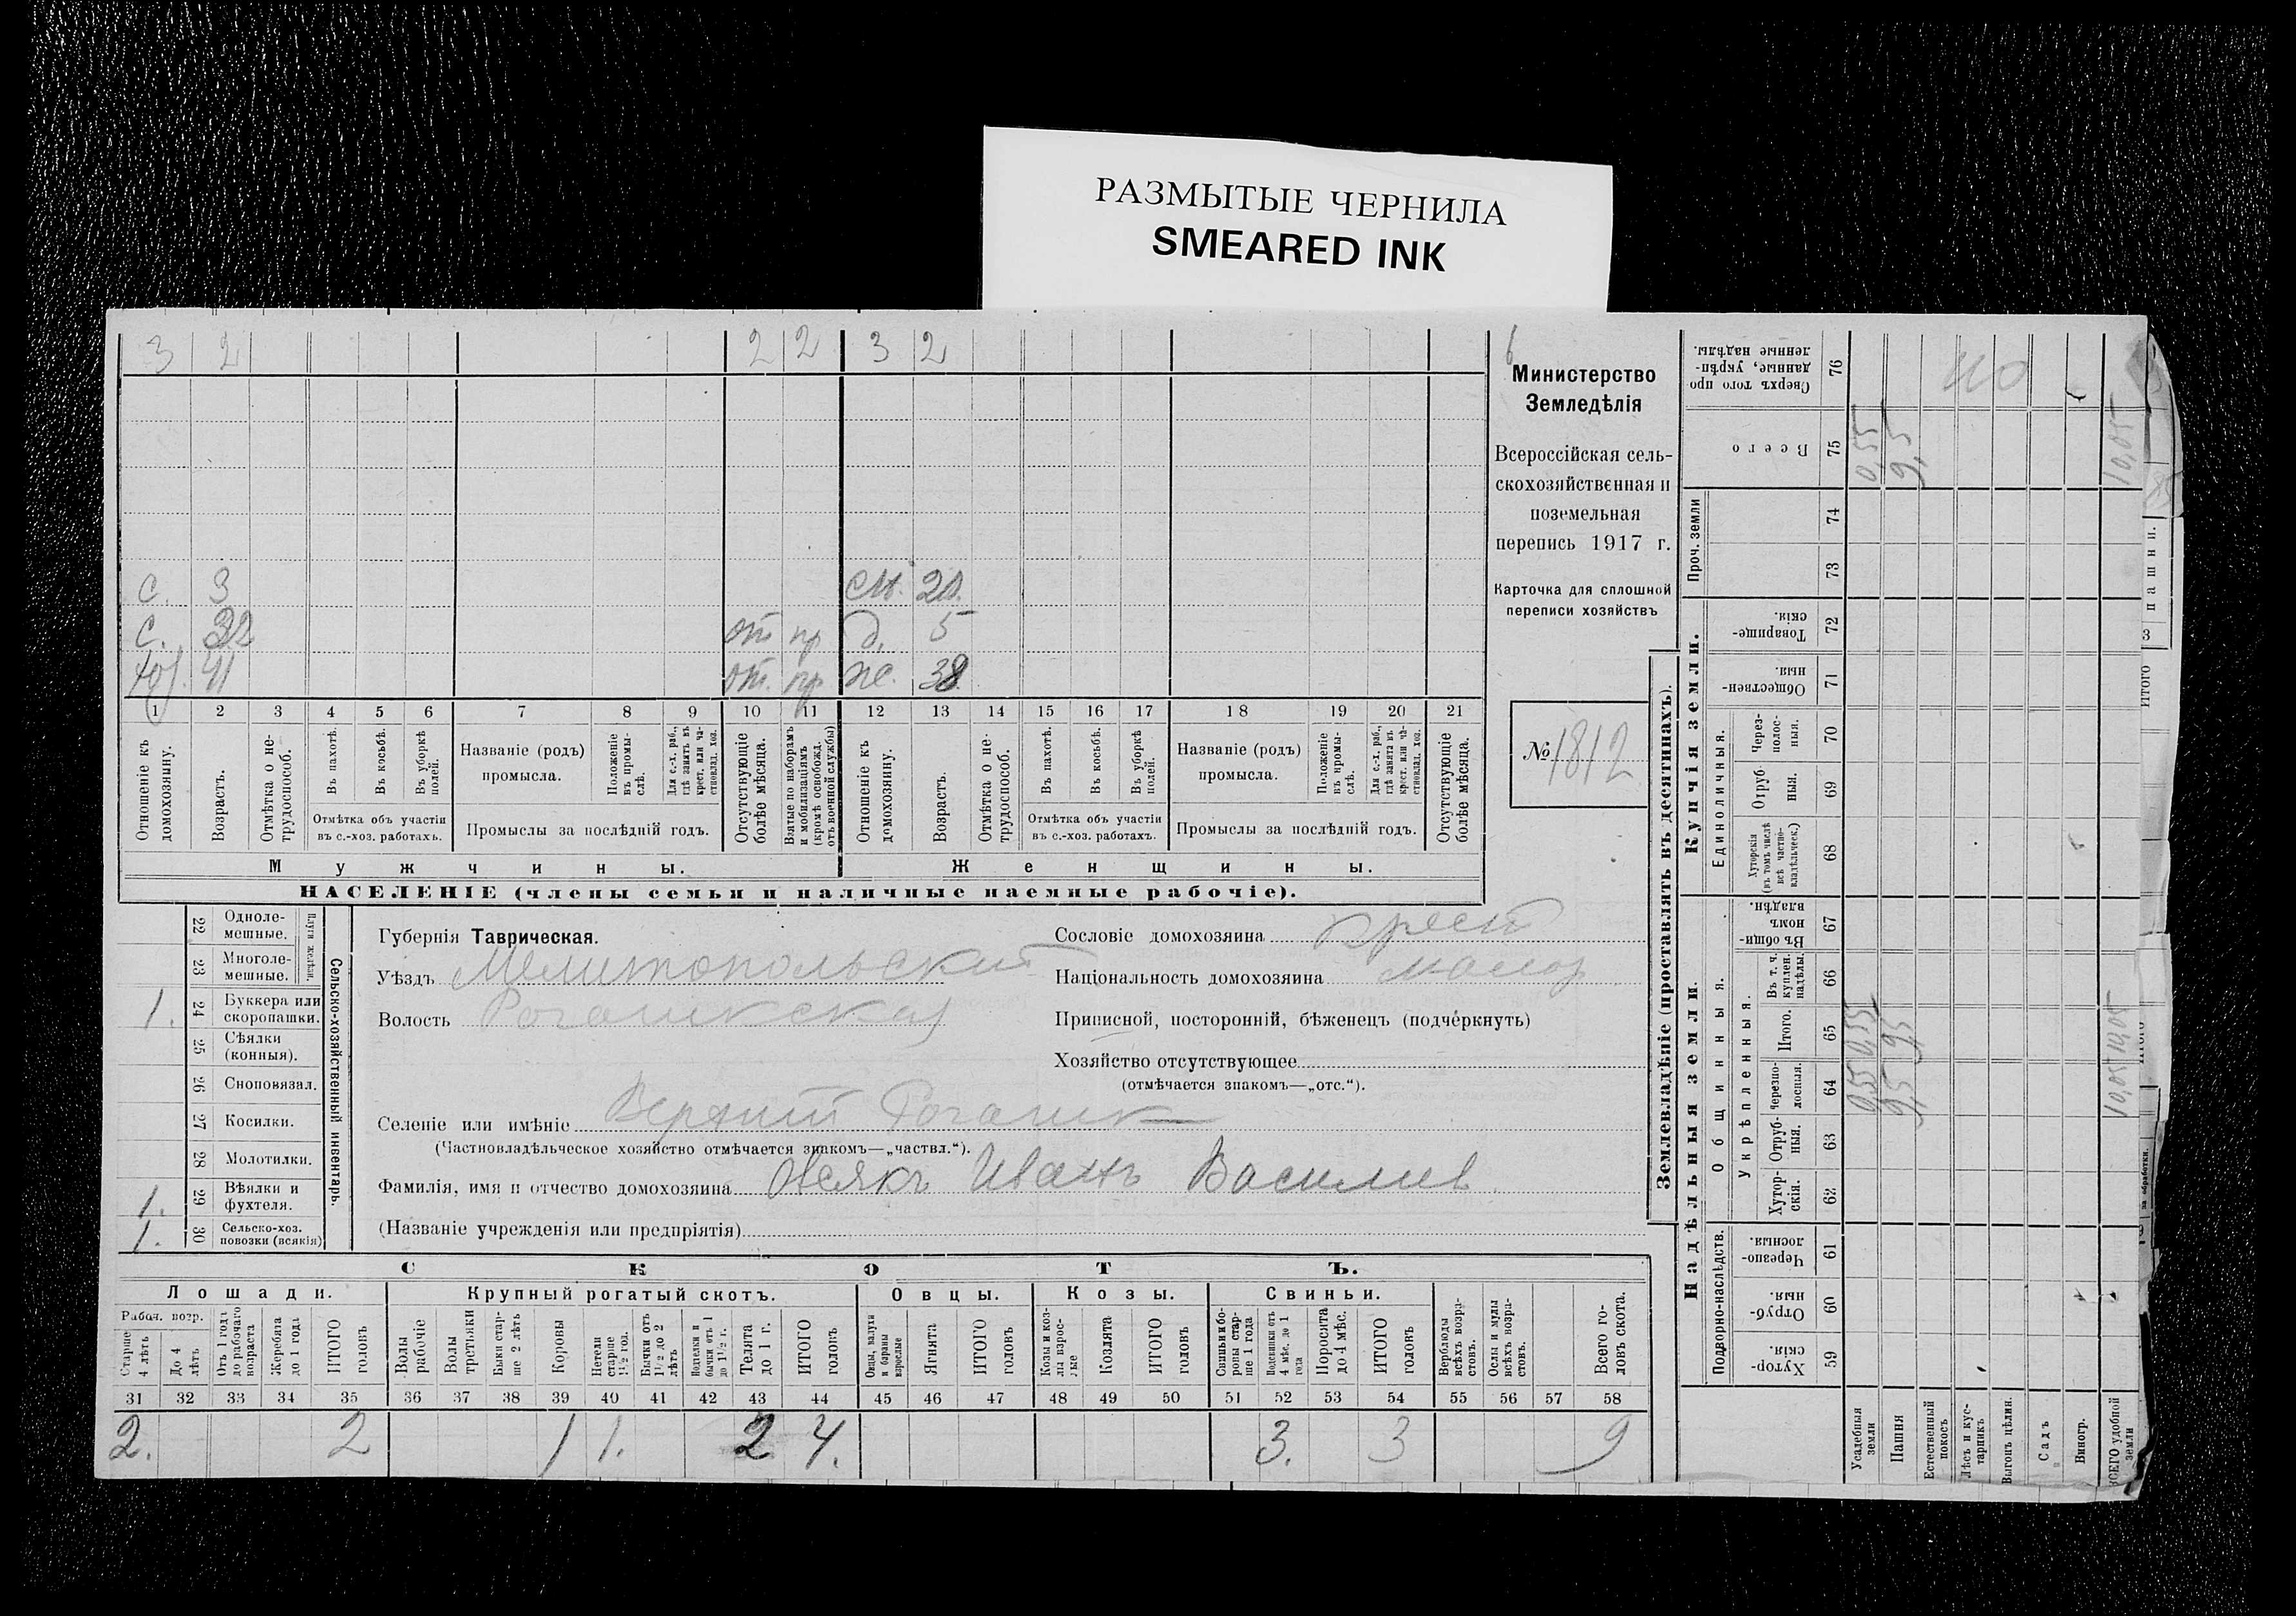 РАЗМЫТЫЕ ЧЕРНИЛА
SMEARED INK
3 2 2 2 3 2
с. 3 сн. 20.
с. 32 от пр д. 5
хоз. 41 от. пр ж. 38
1 2 3 4 5 6 7 8 9 10 11 12 13 14 15 16 17 18 19 20 21
Отношеніе къ домохозяину.
Возрастъ.
Отмѣтка о нетрудоспособ.
Въ пахотѣ.
Въ косьбѣ.
Въ уборкѣ полей.
Отмѣтка объ участіи
въ с.-хоз. работахъ.
Названіе (родъ)
промысла.
Положеніе въ промыслѣ.
Для с.-х. раб., гдѣ занятъ въ крест. или частновлад. хоз.
Промыслы за послѣдній годъ.
Отсутствующіе болѣе мѣсяца.
Взятые по наборамъ и мобилизаціямъ (кромѣ освобожд. отъ военной службы)
Отношеніе къ домохозяину.
Возрастъ.
Отмѣтка о нетрудоспособ.
Въ пахотѣ.
Въ косьбѣ.
Въ уборкѣ полей.
Отмѣтка объ участіи
въ с.-хоз. работахъ.
Названіе (родъ)
промысла.
Положеніе въ промыслѣ.
Для с.-х. раб., гдѣ занята въ крест. или частновлад. хоз.
Промыслы за послѣдній годъ.
Отсутствующіе болѣе мѣсяца.
Мужчины. Женщины.
НАСЕЛЕНІЕ (члены семьи и наличные наемные рабочіе).
Министерство
Земледѣлія
Всероссійская сель-
скохозяйственная и
поземельная
перепись 1917 г.
Карточка для сплошной
переписи хозяйствъ
№ 1812
22 Одноле-
мешные.
23 Многоле-
мешные.
Плуги желѣзн.
1. 24 Буккера или
скоропашки.
25 Сѣялки
(конныя).
26 Сноповязал.
27 Косилки.
28 Молотилки.
1. 29 Вѣялки и
фухтеля.
1. 30 Сельско-хоз.
повозки (всякія)
Сельско-хозяйственный инвентарь.
Губернія Таврическая.
Уѣздъ Мелитопольский
Волость Рогачикская
Сословіе домохозяина крест
Національность домохозяина малор
Приписной, посторонній, бѣженецъ (подчеркнуть)
Хозяйство отсутствующее
(отмѣчается знакомъ—„отс.“).
Селеніе или имѣніе Верхний Рогачик
(Частновладѣльческое хозяйство отмѣчается знакомъ—„частвл.“).
Фамилія, имя и отчество домохозяина Овсякъ Иванъ Васильев
(Названіе учрежденія или предпріятія)
СКОТЪ.
Лошади. Крупный рогатый скотъ. Овцы. Козы. Свиньи.
Рабоч. возр.
Старше 4 лѣтъ
До 4 лѣтъ
Отъ 1 года до рабочаго возраста
Жеребята до 1 года
ИТОГО головъ
Волы рабочіе
Волы третьяки
Быки старше 2 лѣтъ
Коровы
Нетели старше 1½ год.
Бычки отъ 1½ до 2 лѣтъ
Подтелки и бычки отъ 1 до 1½ г.
Телята до 1 г.
ИТОГО головъ
Овцы, валухи и бараны взрослые
Ягнята
ИТОГО головъ
Козы и козлы взрослые
Козлята
ИТОГО головъ
Свиньи и боровы старше 1 года
Подсвинки отъ 4 мѣс. до 1 года
Поросята до 4 мѣс.
ИТОГО головъ
Верблюды всѣхъ возрастовъ.
Ослы и мулы всѣхъ возрастовъ.
Всего головъ скота.
31 32 33 34 35 36 37 38 39 40 41 42 43 44 45 46 47 48 49 50 51 52 53 54 55 56 57 58
2. 2 1 1. 2 4. 3. 3 9
Землевладѣніе (проставлять въ десятинахъ).
Купчія земли.
Надѣльныя земли.
Сверхъ того проданные, укрѣпленные надѣлы. 76
Всего 75
Проч. земли 74 73
Товарищескія. 72
Общественныя. 71
Единоличныя.
Черезполосныя. 70
Отрубныя. 69
Хуторскія (въ томъ числѣ всѣ частновладѣльческ.) 68
Общинныя.
Въ общинномъ владѣн. 67
Укрѣпленныя.
Въ т. ч. куплен. надѣлы. 66
Итого. 65
Черезполосныя. 64
Отрубныя. 63
Хуторскія. 62
Подворно-наслѣдств.
Черезполосныя. 61
Отрубныя. 60
Хуторскія. 59
Усадебныя земли 0,55 0,55 0,55
Пашня 9,5 9,5 9,5
Естественный покосъ
Лѣсъ и кустарникъ
Выгонъ цѣлин.
Садъ
Виногр.
ВСЕГО удобной земли 10,05 10,05 10,05
ИТОГО 3 пашни.